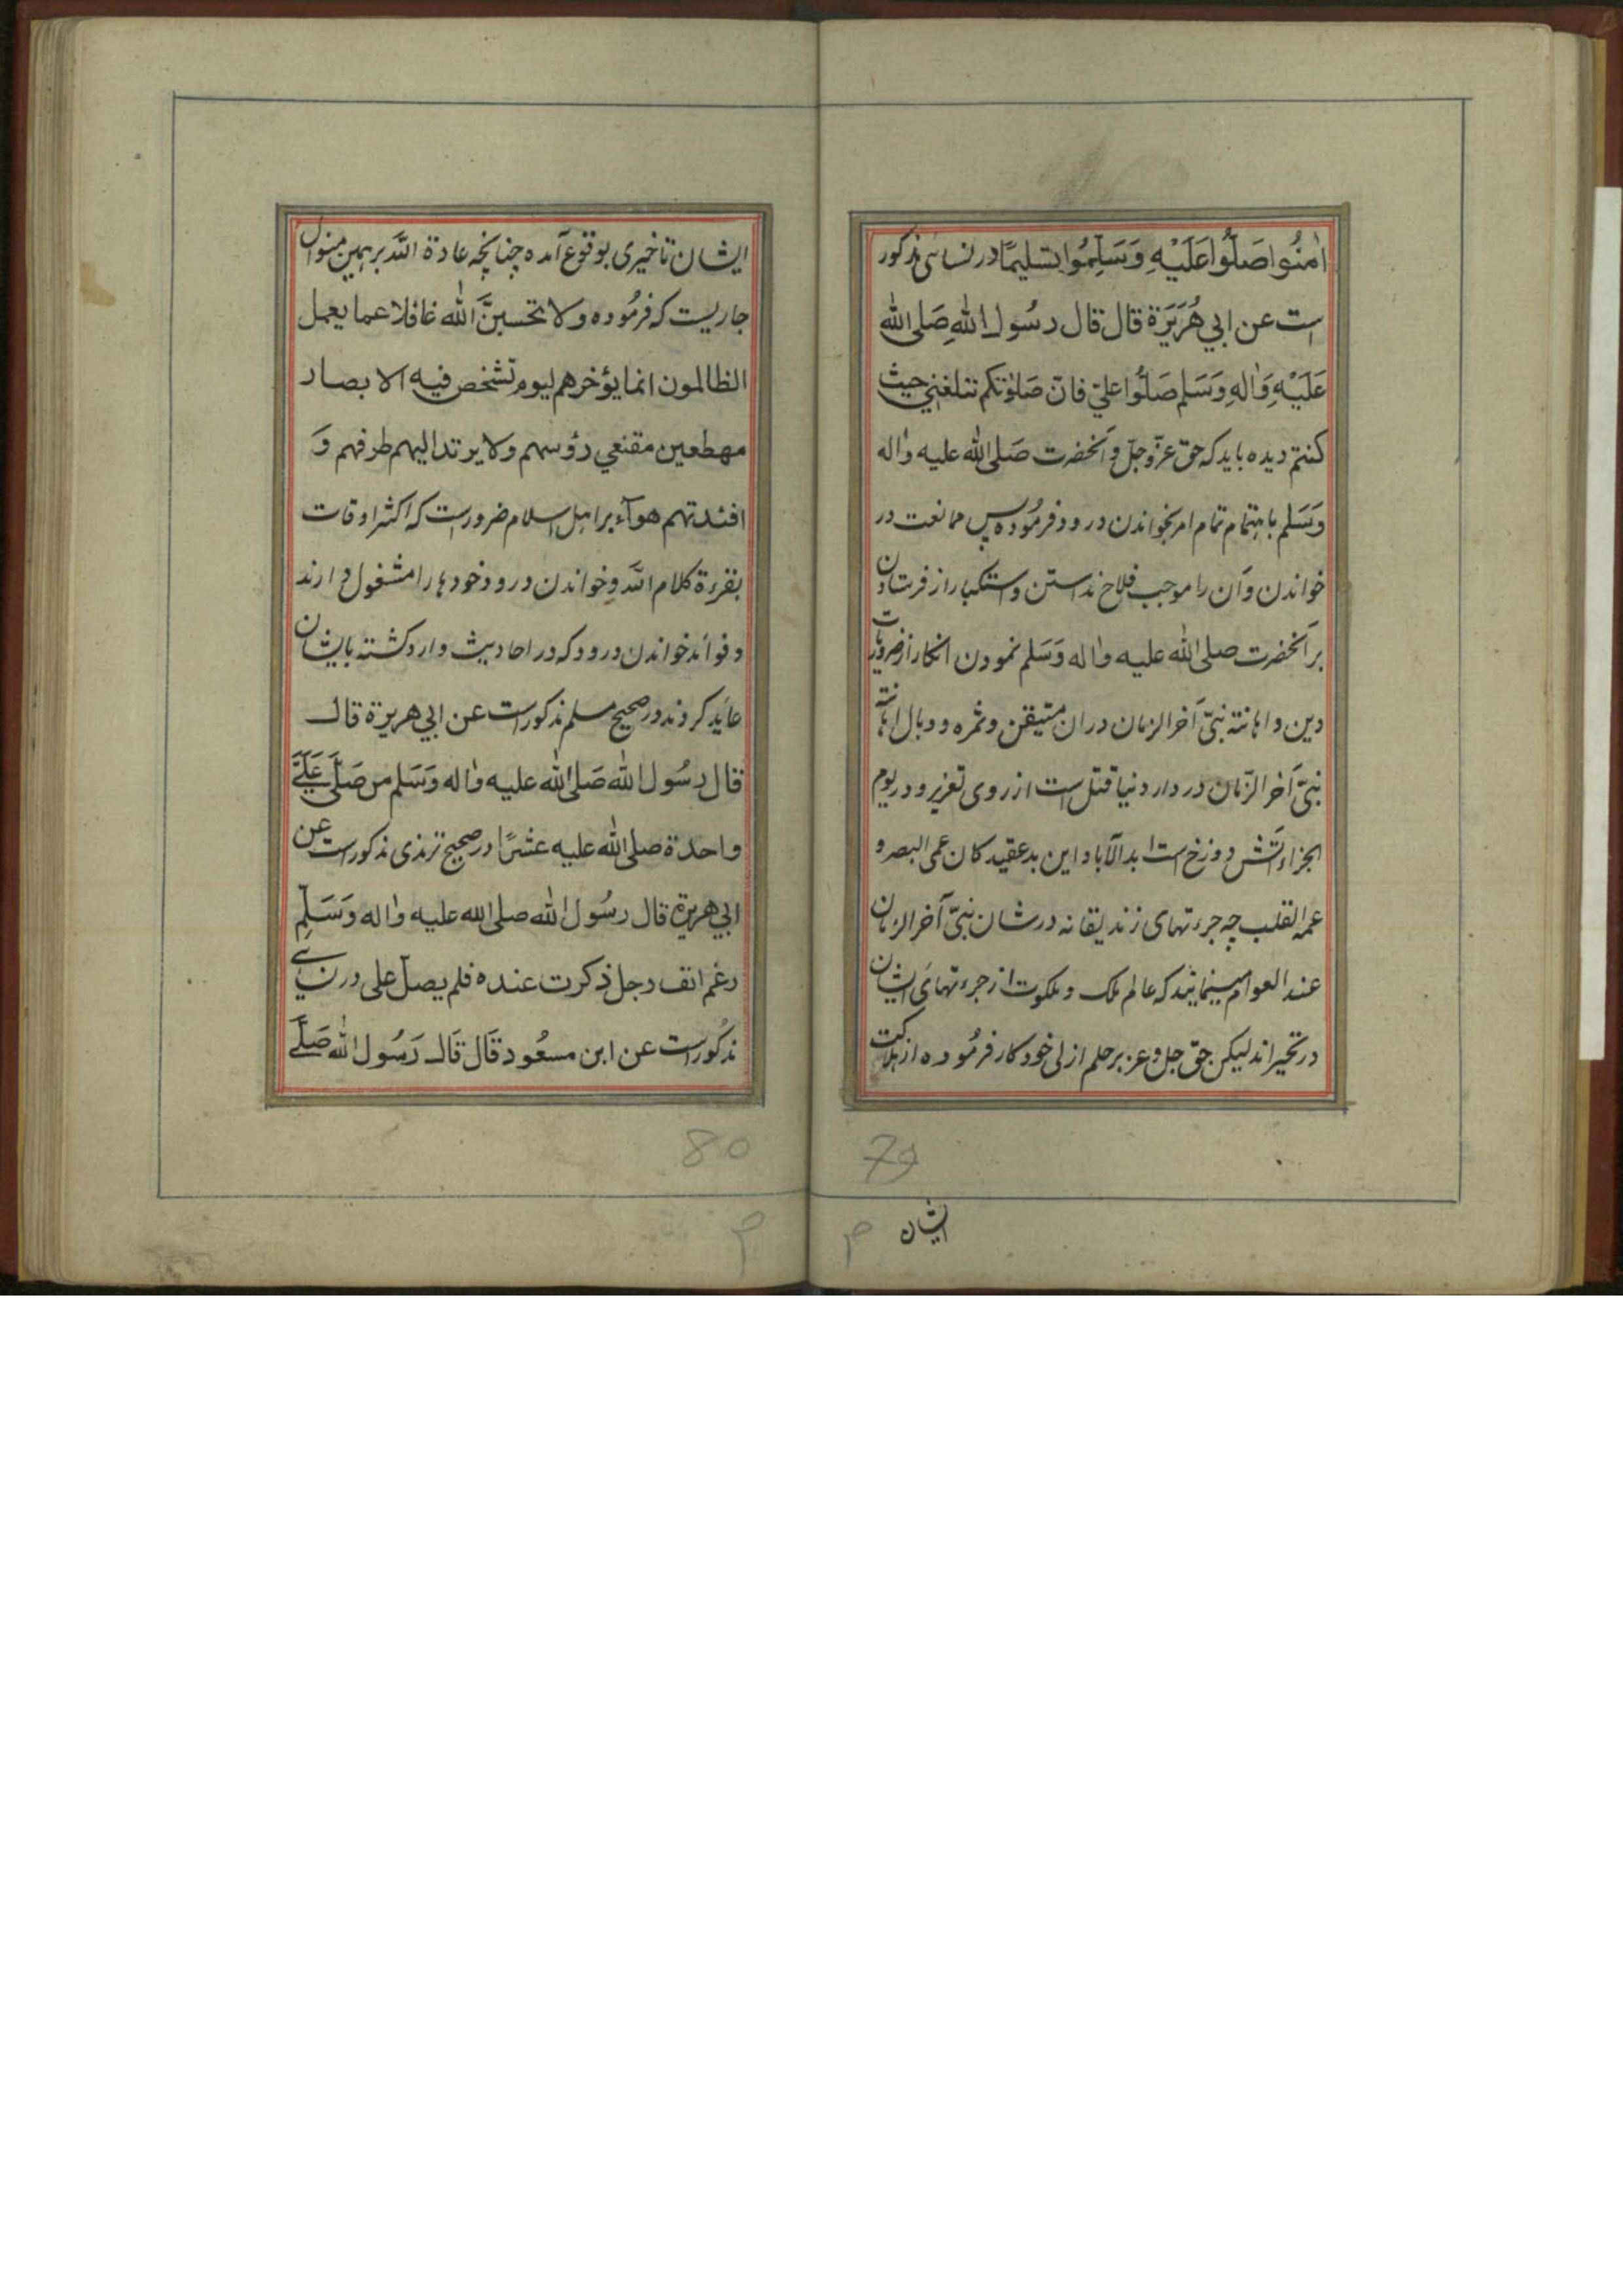 اٰمنُوا صَلُّوا عَلَيْهِ وَسَلِّمُوا تسليمًا در نسائی مذکور
است عن ابي هُرَيَرَة قال قال رسُول اللهِ صَلى الله
عَلَيْهِ وَاٰلهِ وَسَلم صَلُّوا عليّ فانّ صَلوٰتكم تبلغني حيث
كنتم دیده باید که حق عزّ وجلّ و آنحضرت صَلى الله عليه واٰله
وَسَلم باهتمام تمام امر بخواندن درود فرمُوده پس ممانعت در
خواندن وآن را موجب فلاح نداستن و استکبار از فرستادن
بر آنحضرت صلى الله عليه واٰله وَسَلم نمودن انکار از ضروریات
دین و اهانته نبیّ آخر الزمان دران متیقن و ثمره و وبال اهانته
نبیّ آخر الزّمان در دار دنیا قتل است از روی تعزیر و در یوم
الجزاء آتش دوزخ است ابد الآباد این بدعقیدکان عمی البصر و
عمه القلب چه جرءتهای زندیقانه در شان نبیّ آخر الزمان
عند العوام مینمایند که عالم ملک و ملکوت از جرءتهای ایشان
در تحیر اند لیکن حق جل و عز بر حلم ازلی خود کار فرمُوده از هلاکت
79
ایشان
ایشان تاخیری بوقوع آمده چنانچه عادة اللّه بر همین منوال
جاریست که فرمُوده ولا تحسبنَّ الله غافلا عما يعمل
الظالمون انما يؤخرهم ليوم تشخص فيه الابصار
مهطعين مقنعي رؤسهم ولا يرتد اليهم طرفهم وَ
افئدتهم هوآء بر اهل اسلام ضرورست که اکثر اوقات
بقرءة کلام اللّه وخواندن درود خودها را مشغول دارند
و فوائد خواندن درود که در احادیث وارد کشته بایشان
عاید کردند در صحیح مسلم مذکور است عن ابي هريرة قال
قال رسُول الله صَلى الله عليه واٰله وَسَلم من صَلّى عَلَيَّ
واحدة صلى الله عليه عشرًا در صحیح ترمذی مذکور است عن
ابي هريرة قال رسُول الله صلى الله عليه واٰله وَسَلّم
رغم انف رجل ذكرت عنده فلم يصلّ على در نسائی
مذکُور است عن ابن مسعُود قَال قَال رَسُول الله صَلَّى
80